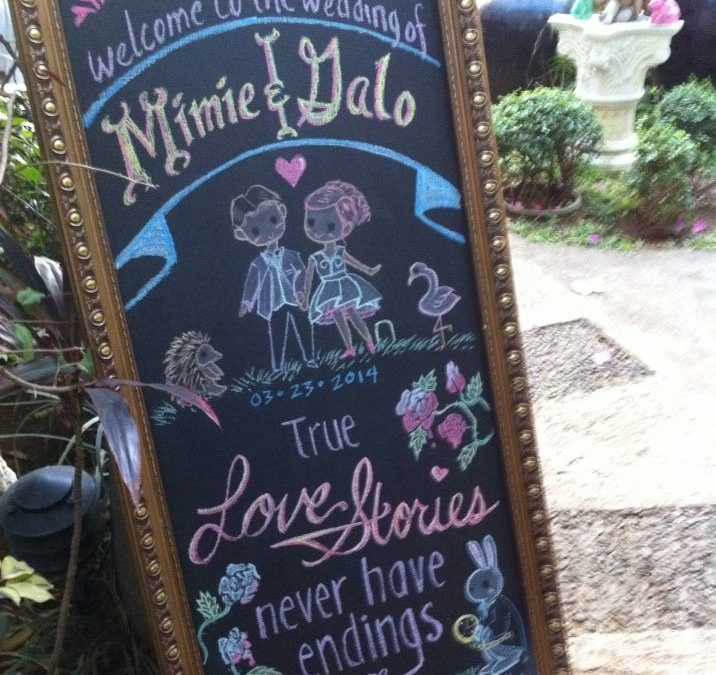 Welcome to the wedding of
Mimie & Galo
03 • 23 • 2014
True
Love Stories
never have
endings